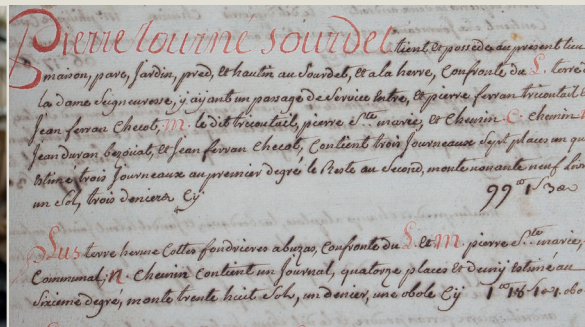 Pierre Tourne Sourdet tient et possede au present lieu
maison, parc, Jardin, pred, et hautin au Sourdet, et a la herre, Confronte du L. terre
la dame Seigneuresse, y ayant un passage de Service entre, et pierre ferran tricoutail
Jean ferran Checot, M. le dit tricoutail, pierre Ste marie, et Chemin C. Chemin
Jean duran bezoual, et Jean ferran Checot, Contient trois Journeaux Sept places un
Estimé trois Journeaux au premier degré le Reste au Second, monte nonante neuf
un Sol, trois deniers Cy 99 1 S 3
Plus terre herme Cottes fondrieres abuzas, Confronte du L. et M. pierre Ste marie,
Communal, N. Chemin Contient un Journal, quatorze places et demy Estimé au
Sixieme degré, monte trente huit Sols, un denier, une obole Cy 1 18 1 obo